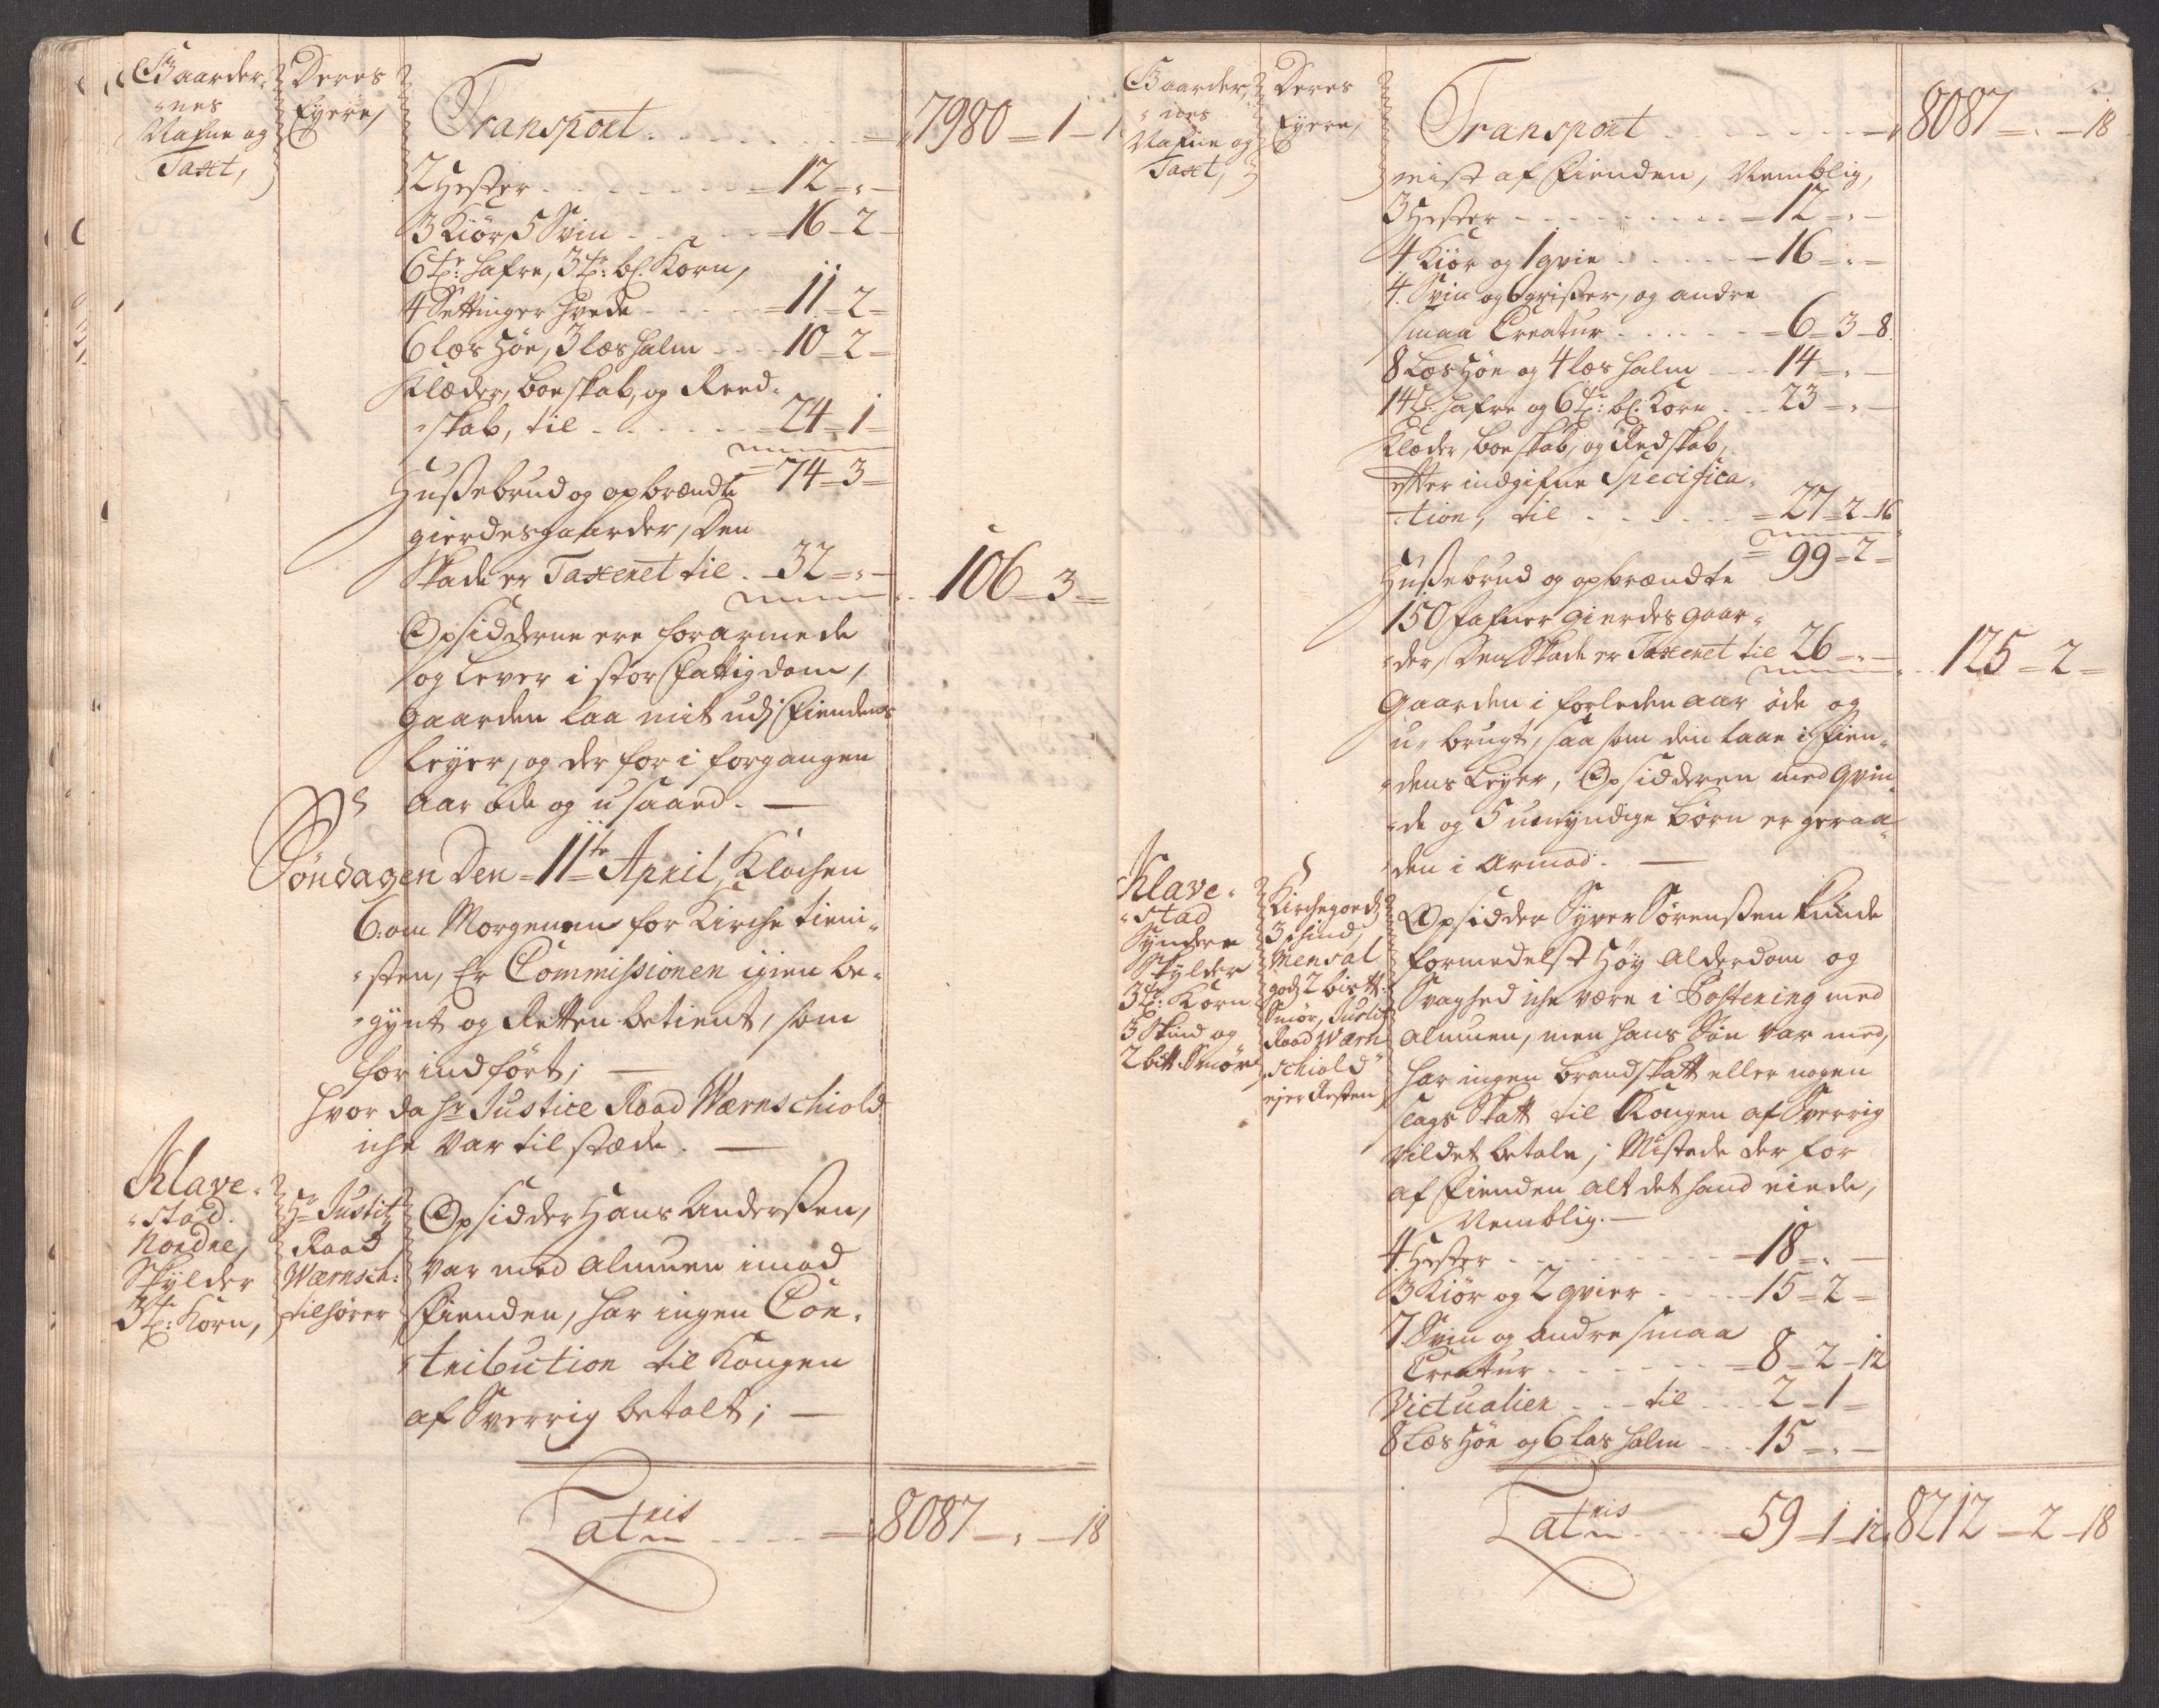 Gaarder-
"nes
Nafne og
Taxt,
Deres
Eyere,
Transport. 7980 - 1 -
2 Hester 12 - " -
3 Kiör, 5 Svin 16 - 2 -
6 tr: hafre, 3 tr: bl. Korn,
4 Settinger hvede 11 - 2 -
6 læs Höe, 3 læs halm 10 - 2 -
Klæder, boeskab, og Reed-
"skab, til 24 - 1 -
74 - 3 -
Hussebrud og opbrændte
gierdesgaarder, Den
Skade er Taxeret til. 32 - " -
106 - 3 -
Opsidderne ere forarmede
og lever i stor fattigdom,
gaarden laa mit udj Fiendens
leyer, og der for i forgangen
aar öde og usaaed. —
Söndagen Den 11te April, Klochen
6. om Morgenen for Kirche tieni-
"sten, Er Commissionen igien be-
"gynt og Retten betient, som
for indfört; —
hvor da hr Justice Raad Wærnschiold
iche var tilstæde. —
Klave-
"stad.
Nordre,
Skylder
3 tr: Korn,
Hr Justitz
Raad
Wærnsch:
tilhörer
Opsidder Hans Anderssen,
var med Almuen imod
Fienden, har ingen Con-
"tribution til Kongen
af Sverrig betalt; —
Latris 8087 - " - 18
Gaarder-
"nes
Nafne og
Taxt,
Deres
Eyere,
Transport 8087 - " - 18
mist af Fienden, Nemblig,
3 Hester 12 - " -
4 Kiör og 1 qvie 16 - " -
4. Svin og 6 grisser, og andre
smaa Creatur 6 - 3 - 8.
8 Læs Höe og 4 læs halm 14 - " -
14 tr. hafre og 6 tr: bl. Korn 23 - " -
Klæder, boeskab, og Redskab,
efter indgifne Specifica-
"tion, til 27 - 2 - 16
99 - 2 -
Hussebrud og opbrændte
150 fafner gierdesgaar-
"der, Den Skade er Taxeret til 26 - " -
125 - 2 -
Gaarden i forleden aar öde og
u-brugt, saa som den laae i Fien-
"dens Leyer, Opsidderen med qvin-
"de og 5 umyndige börn er geraa-
"den i Armod. —
Klave-
"stad
Syndere
Skylder
3 tr: Korn
3 Skind og
2 bitt Smör
Kirchegods
3 skind,
Mensal
gods 2 bistt.
Smör, Justitz
Raad Wærn
schiold
ejer Resten
Opsidder Syver Sörenssen kunde
formedelst höy Alderdom og
Svaghed iche være i Postering med
Almuen, men hans Sön var med,
har ingen brandskatt eller nogen
slags Skatt til Kongen af Sverrig
vildet betale; Mistede der for
af Fienden alt det hand eiede,
Nemblig. —
4. Hester 18 - " -
3 Kiör og 2 qvier 15 - 2 -
7. Svin og andre smaa
Creatur 8 - 2 - 12
Victualier til 2 - 1 -
8 Læs Höe og 6 las halm 15 - " -
Latris 59 - 1 - 12. 8212 - 2 - 18